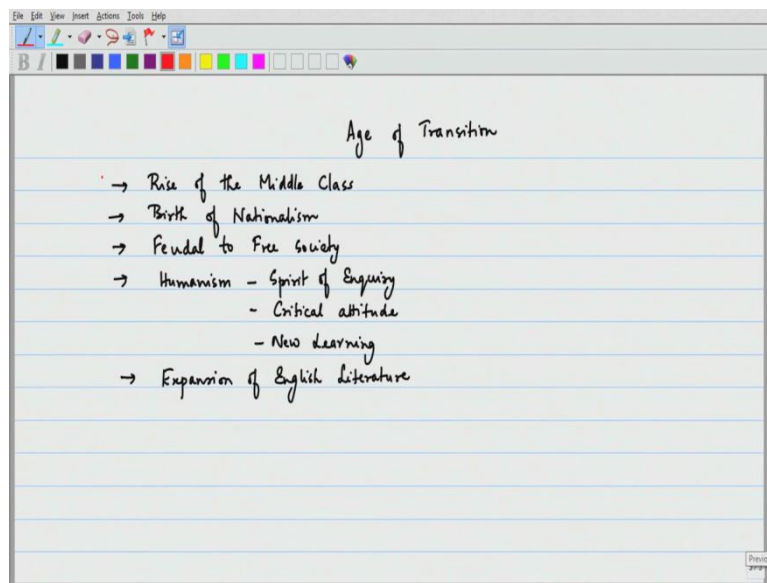 File Edit View Insert Actions Tools Help
B I
Age of Transition
→ Rise of the Middle Class
→ Birth of Nationalism
→ Feudal to Free Society
→ Humanism - Spirit of Enquiry
- Critical attitude
- New Learning
→ Expansion of English Literature